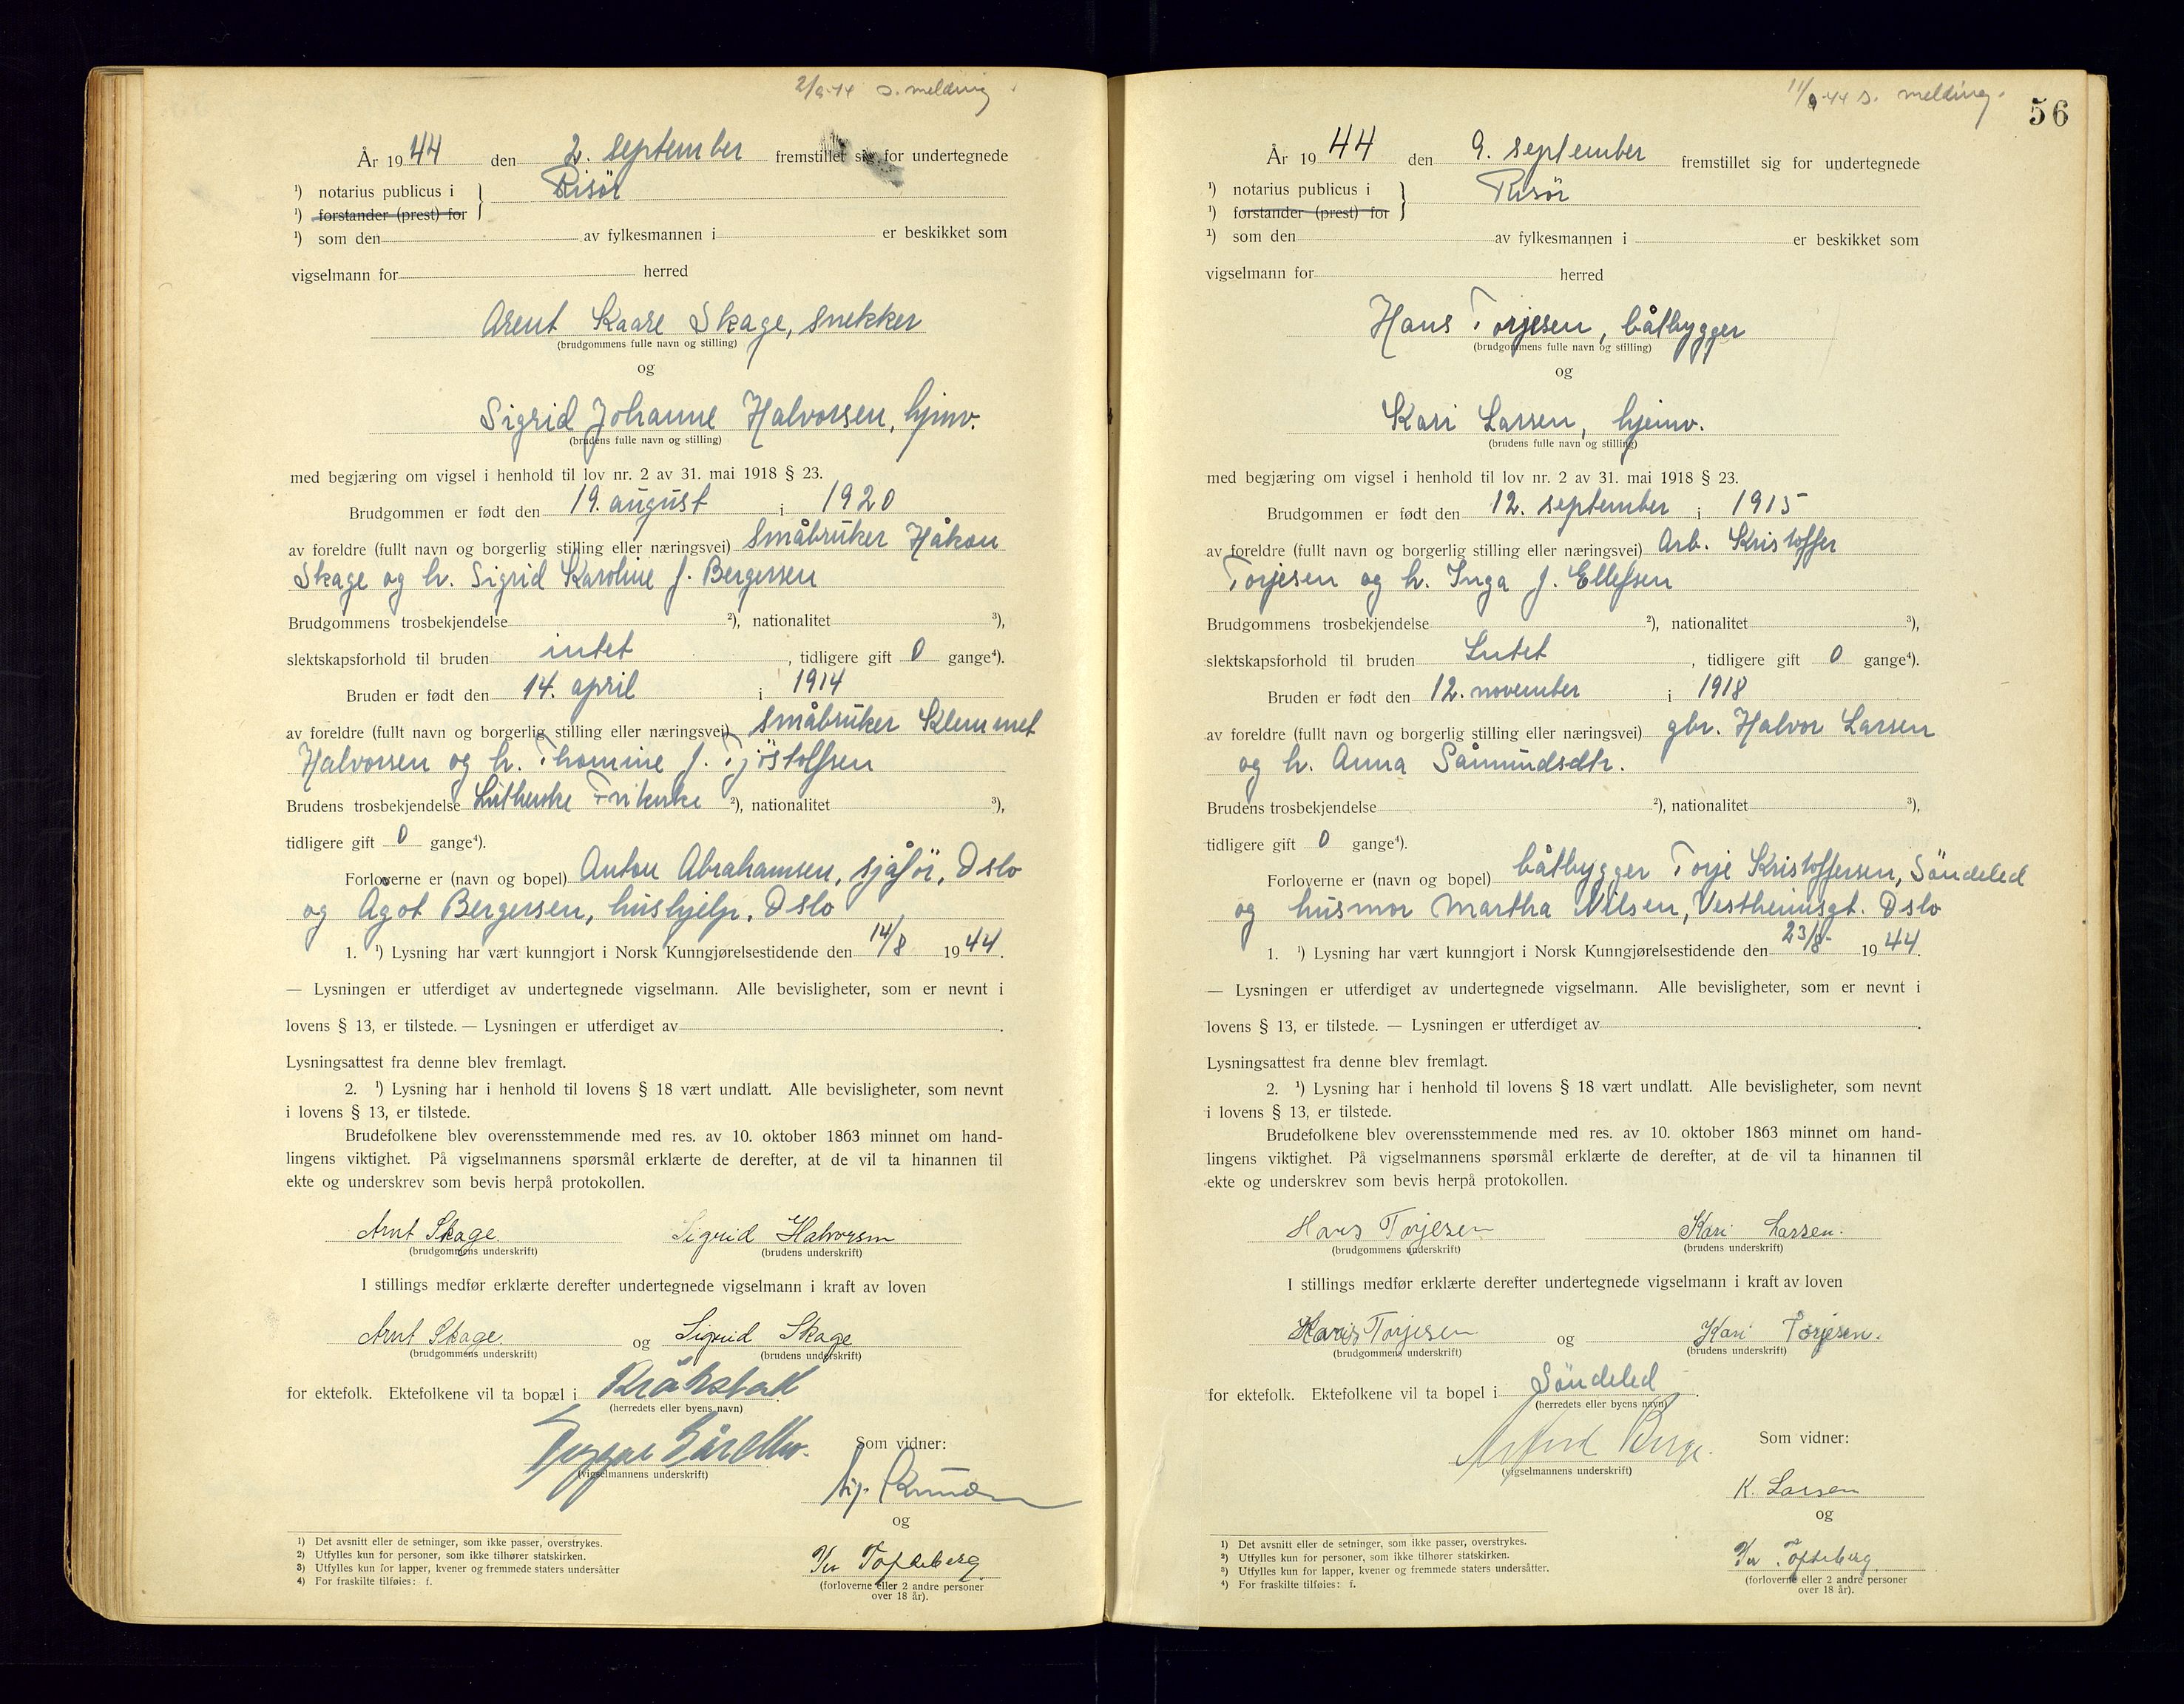 2/9-44 s. melding
År 1944 den 2. september fremstillet sig for undertegnede
¹) notarius publicus i } Risör
¹) forstander (prest) for
¹) som den av fylkesmannen i er beskikket som
vigselmann for herred
Arent Kaare Skage, snekker
(brudgommens fulle navn og stilling)
og
Sigrid Johanne Halvorsen, hjmv.
(brudens fulle navn og stilling)
med begjæring om vigsel i henhold til lov nr. 2 av 31. mai 1918 § 23.
Brudgommen er født den 19. august i 1920
av foreldre (fullt navn og borgerlig stilling eller næringsvei) småbruker Håkon
Skage og h. Sigrid Karoline f. Bergersen
Brudgommens trosbekjendelse ²), nationalitet ³),
slektskapsforhold til bruden intet, tidligere gift 0 gange⁴).
Bruden er født den 14. april i 1914
av foreldre (fullt navn og borgerlig stilling eller næringsvei) småbruker Klemmet
Halvorsen og h. Thomine f. Tjöstolfsen
Brudens trosbekjendelse Lutherske Frikirke ²), nationalitet ³),
tidligere gift 0 gange⁴).
Forloverne er (navn og bopel) Anton Abrahamsen, sjåför, Oslo
og Ågot Bergersen, hushjelp, Oslo
1. ¹) Lysning har vært kunngjort i Norsk Kunngjørelsestidende den 14/8 1944.
— Lysningen er utferdiget av undertegnede vigselmann. Alle bevisligheter, som er nevnt i
lovens § 13, er tilstede. — Lysningen er utferdiget av .
Lysningsattest fra denne blev fremlagt.
2. ¹) Lysning har i henhold til lovens § 18 vært undlatt. Alle bevisligheter, som nevnt
i lovens § 13, er tilstede.
Brudefolkene blev overensstemmende med res. av 10. oktober 1863 minnet om hand-
lingens viktighet. På vigselmannens spørsmål erklærte de derefter, at de vil ta hinannen til
ekte og underskrev som bevis herpå protokollen.
Arnt Skage. Sigrid Halvorsen
(brudgommens underskrift) (brudens underskrift)
I stillings medfør erklærte derefter undertegnede vigselmann i kraft av loven
Arnt Skage. og Sigrid Skage
(brudgommens underskrift) (brudens underskrift)
for ektefolk. Ektefolkene vil ta bopæl i Kråkstad
(herredets eller byens navn)
Som vidner:
(vigselmannens underskrift)
og
Per Tofteberg
(forloverne eller 2 andre personer
over 18 år).
¹) Det avsnitt eller de setninger, som ikke passer, overstrykes.
²) Utfylles kun for personer, som ikke tilhører statskirken.
³) Utfylles kun for lapper, kvener og fremmede staters undersåtter
⁴) For fraskilte tilføies: f.
11/9-44 s. melding.
56
År 1944 den 9. september fremstillet sig for undertegnede
¹) notarius publicus i } Risör
¹) forstander (prest) for
¹) som den av fylkesmannen i er beskikket som
vigselmann for herred
Hans Torjesen, båtbygger
(brudgommens fulle navn og stilling)
og
Kari Larsen, hjemv.
(brudens fulle navn og stilling)
med begjæring om vigsel i henhold til lov nr. 2 av 31. mai 1918 § 23.
Brudgommen er født den 12. september i 1915
av foreldre (fullt navn og borgerlig stilling eller næringsvei) Arb. Kristoffer
Torjesen og h. Inga f. Ellefsen
Brudgommens trosbekjendelse ²), nationalitet ³),
slektskapsforhold til bruden Intet, tidligere gift 0 gange⁴).
Bruden er født den 12. november i 1918
av foreldre (fullt navn og borgerlig stilling eller næringsvei) gbr. Halvor Larsen
og h. Anna Såmundsdtr.
Brudens trosbekjendelse ²), nationalitet ³),
tidligere gift 0 gange⁴).
Forloverne er (navn og bopel) båtbygger Torje Kristoffersen, Söndeled
og husmor Martha Nilsen, Vestheimsgt. Oslo
1. ¹) Lysning har vært kunngjort i Norsk Kunngjørelsestidende den 23/8- 1944.
— Lysningen er utferdiget av undertegnede vigselmann. Alle bevisligheter, som er nevnt i
lovens § 13, er tilstede. — Lysningen er utferdiget av .
Lysningsattest fra denne blev fremlagt.
2. ¹) Lysning har i henhold til lovens § 18 vært undlatt. Alle bevisligheter, som nevnt
i lovens § 13, er tilstede.
Brudefolkene blev overensstemmende med res. av 10. oktober 1863 minnet om hand-
lingens viktighet. På vigselmannens spørsmål erklærte de derefter, at de vil ta hinannen til
ekte og underskrev som bevis herpå protokollen.
Hans Torjesen Kari Larsen.
(brudgommens underskrift) (brudens underskrift)
I stillings medfør erklærte derefter undertegnede vigselmann i kraft av loven
Hans Torjesen og Kari Torjesen.
(brudgommens underskrift) (brudens underskrift)
for ektefolk. Ektefolkene vil ta bopel i Söndeled.
(herredets eller byens navn)
Berge. Som vidner:
(vigselmannens underskrift)
K. Larsen
og
Per Tofteberg
(forloverne eller 2 andre personer
over 18 år).
¹) Det avsnitt eller de setninger, som ikke passer, overstrykes.
²) Utfylles kun for personer, som ikke tilhører statskirken.
³) Utfylles kun for lapper, kvener og fremmede staters undersåtter.
⁴) For fraskilte tilføies: f.